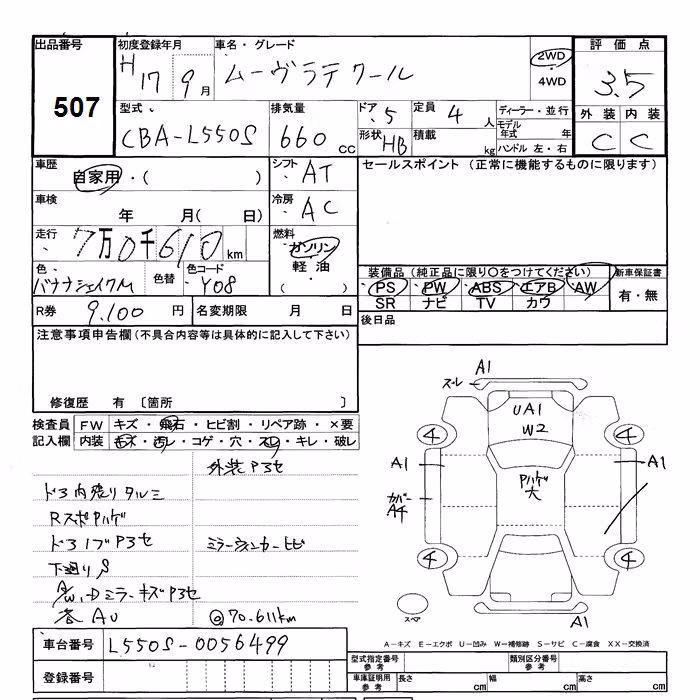 出品番号 初度登録年月 車名・グレード 2WD・4WD 評価点
507 H 17 9月 ムーヴラテ クール 3.5
型式 排気量 ドア 定員 ディーラー・並行 外装 内装
CBA-L550S 660cc 5 4人 モデル年式 年 C C
形状 HB 積載 kg ハンドル 左・右
車歴 自家用・( ) シフト AT セールスポイント(正常に機能するものに限ります)
車検 年 月( 日) 冷房 AC
走行 7万0千610km 燃料 ガソリン・軽油・( )
色 バナナシェイクM 色替 色コード Y08
装備品(純正品に限り○をつけてください) 新車保証書
PS PW ABS エアB AW 有・無
SR ナビ TV カワ
R券 9.100円 名変期限 月 日 後日品
注意事項申告欄(不具合内容等は具体的に記入して下さい)
修復歴 有 〔箇所 〕
検査員記入欄 FW キズ・飛石・ヒビ割・リペア跡・×要
内装 キズ・汚レ・コゲ・穴・スレ・キレ・破レ
外装P3セ
ドア内張りタルミ
RスポPハゲ
ドアノブP3セ ミラーウィンカーヒビ
下廻りS
A/W、Dミラーキズ P3セ
各AU @70.611km
スレ A1
UA1
W2
4 4
A1 A1
Pハゲ
大
カバー
A4
4 4
スペア
A1
A-キズ E-エクボ U-凹み W-補修跡 S-サビ C-腐食 XX-交換済
車台番号 L550S-0056499
型式指定番号 参考 類別区分番号 参考
登録番号 車庫証明用 参考 長さ cm 幅 cm 高さ cm